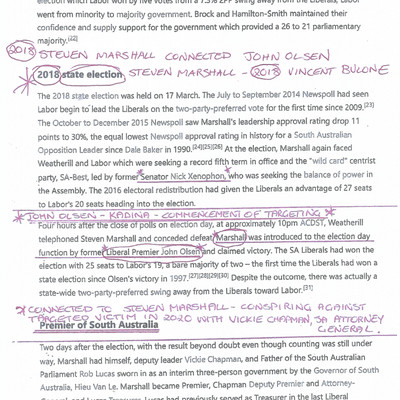 election which Labor won by five votes from a 7.3% 2PP swing away from the Liberals, Labor
went from minority to majority government. Brock and Hamilton-Smith maintained their
confidence and supply support for the government which provided a 26 to 21 parliamentary
majority.[22]
2018 STEVEN MARSHALL CONNECTED JOHN OLSEN
2018 state election STEVEN MARSHALL - 2018 VINCENT BULONE
The 2018 state election was held on 17 March. The July to September 2014 Newspoll had seen
Labor begin to lead the Liberals on the two-party-preferred vote for the first time since 2009.[23]
The October to December 2015 Newspoll saw Marshall's leadership approval rating drop 11
points to 30%, the equal lowest Newspoll approval rating in history for a South Australian
Opposition Leader since Dale Baker in 1990.[24][25][26] At the election, Marshall again faced
Weatherill and Labor which were seeking a record fifth term in office and the "wild card" centrist
party, SA-Best, led by former Senator Nick Xenophon, who was seeking the balance of power in
the Assembly. The 2016 electoral redistribution had given the Liberals an advantage of 27 seats
to Labor's 20 seats heading into the election.
JOHN OLSEN - KADINA - COMMENCEMENT OF TARGETING
Four hours after the close of polls on election day, at approximately 10pm ACDST, Weatherill
telephoned Steven Marshall and conceded defeat. Marshall was introduced to the election day
function by former Liberal Premier John Olsen and claimed victory. The SA Liberals had won the
election with 25 seats to Labor's 19, a bare majority of two – the first time the Liberals had won a
state election since Olsen's victory in 1997.[27][28][29][30] Despite the outcome, there was actually a
state-wide two-party-preferred swing away from the Liberals toward Labor.[31]
CONNECTED TO STEVEN MARSHALL - CONSPIRING AGAINST
TARGETED VICTIM IN 2020 WITH VICKIE CHAPMAN, SA ATTORNEY
GENERAL.
Premier of South Australia
Two days after the election, with the result beyond doubt even though counting was still under
way, Marshall had himself, deputy leader Vickie Chapman, and Father of the South Australian
Parliament Rob Lucas sworn in as an interim three-person government by the Governor of South
Australia, Hieu Van Le. Marshall became Premier, Chapman Deputy Premier and Attorney-
General, and Lucas Treasurer. Lucas had previously served as Treasurer in the last Liberal